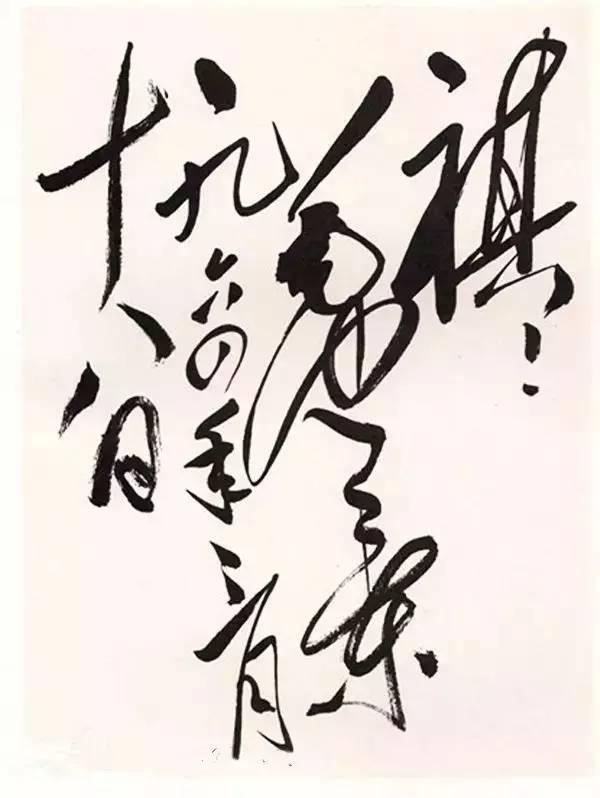 祺！
毛泽东
一九六四年三月
十八日